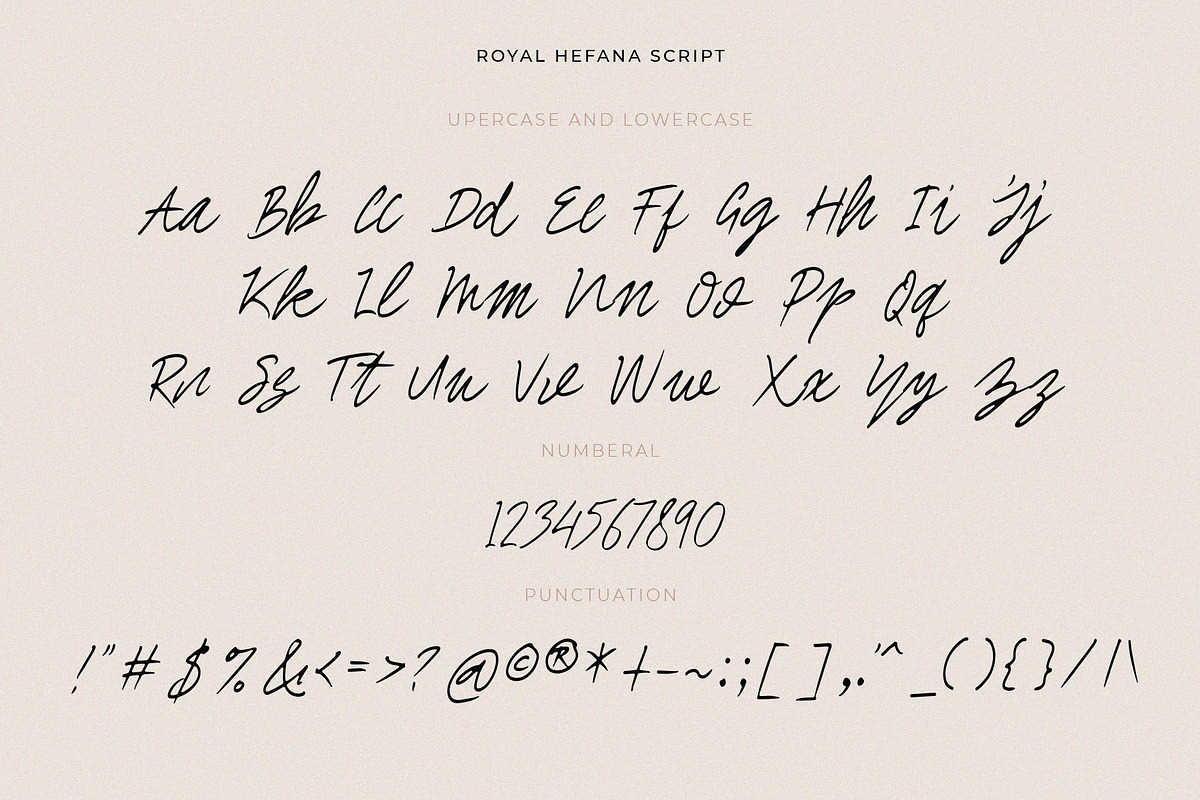 ROYAL HEFANA SCRIPT
UPERCASE AND LOWERCASE
Aa Bb Cc Dd Ee Ff Gg Hh Ii Jj
Kk Ll Mm Nn Oo Pp Qq
Rr Ss Tt Uu Vv Ww Xx Yy Zz
NUMBERAL
1234567890
PUNCTUATION
!"#$%&<=>?@©®*+-~:;[],.'^_(){}/|\